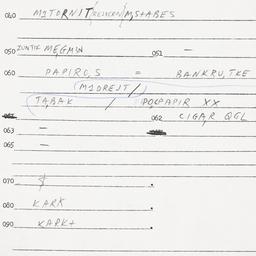 040 MIJORNIT/REINCEN/M,S+ABES
050 ZUNTIK MEGMIN 051 —
060 PAPIRO,S = BANKRU,TKE
(MIDREJT/)
TABAK / POKPAPIR XX
062 CIGAR QGL
063 —
065 —
070 $ .
080 KARK .
090 KARK+ .